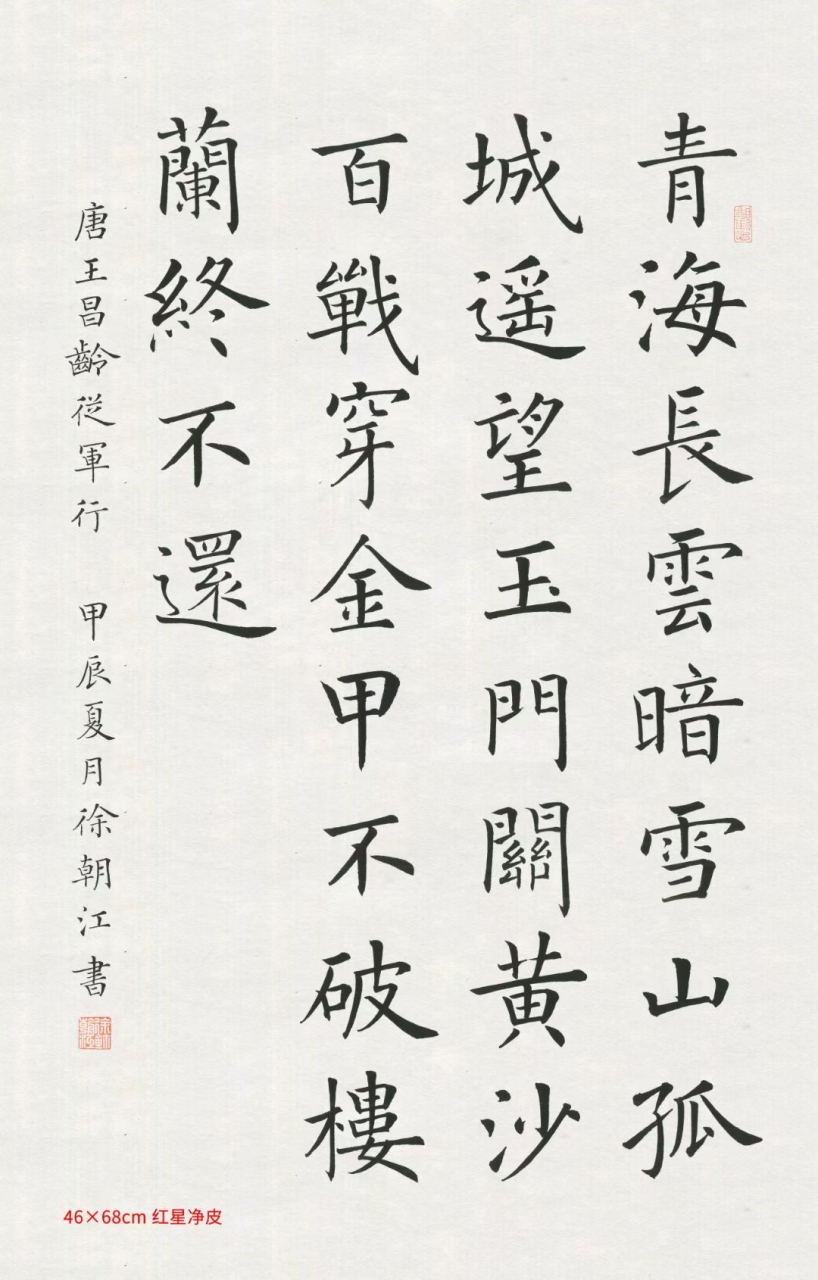 青海長雲暗雪山孤
城遥望玉門關黄沙
百戰穿金甲不破樓
蘭終不還
唐王昌齡從軍行 甲辰夏月徐朝江書
46×68cm 红星净皮